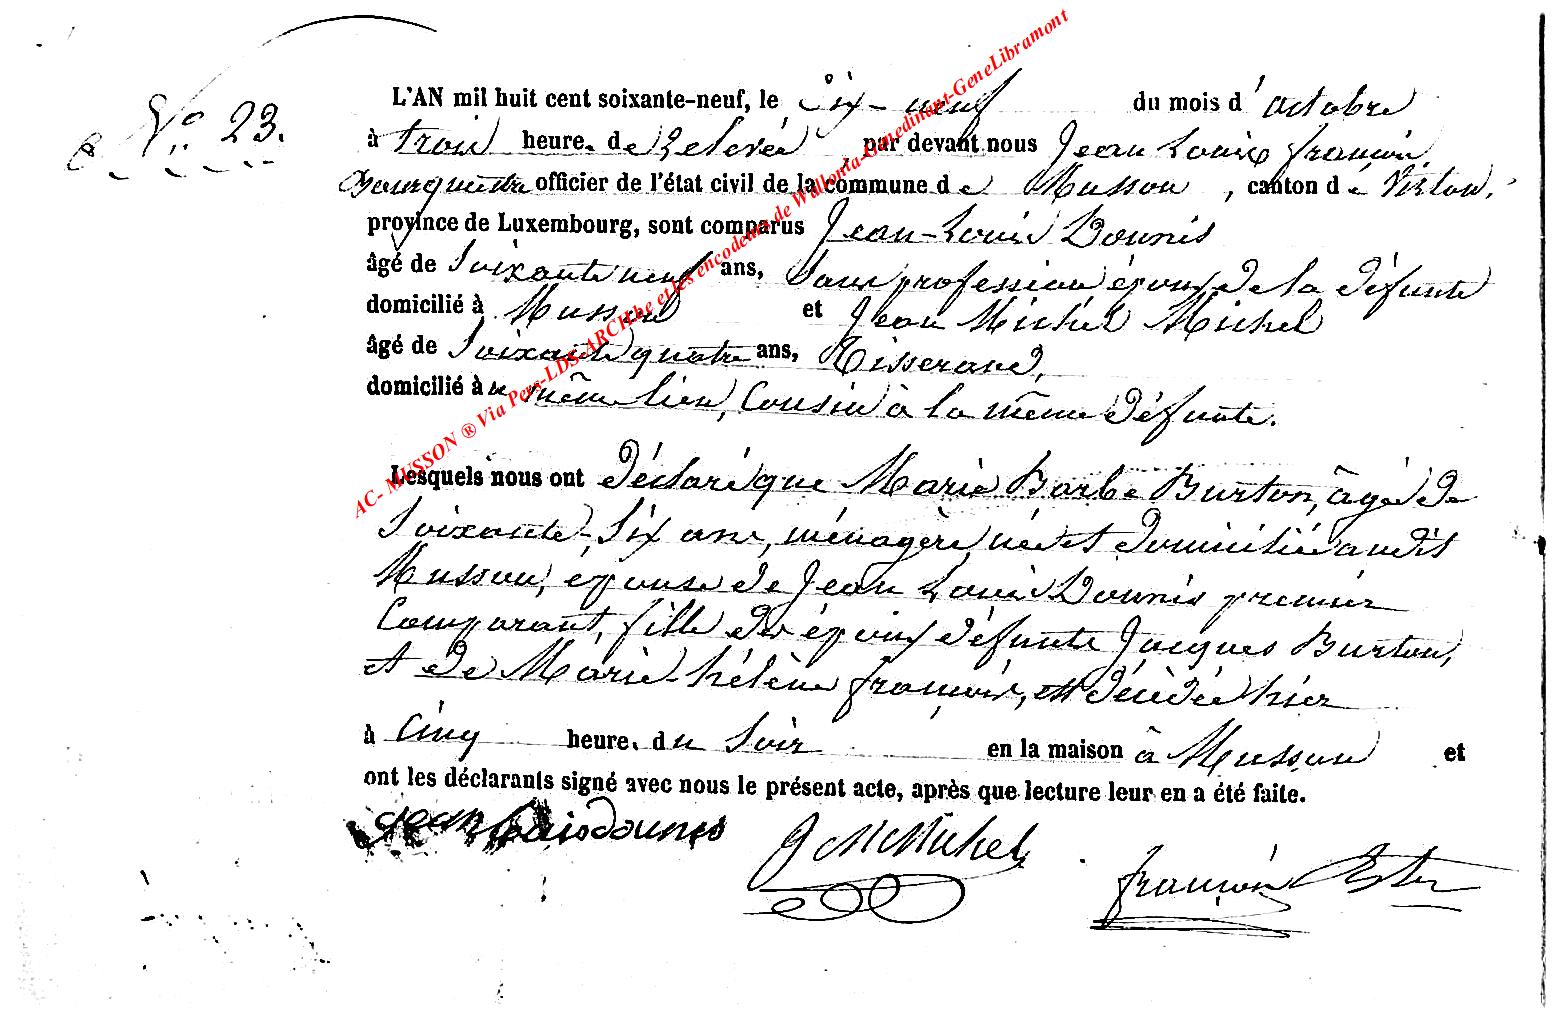 N° 23.
L'AN mil huit cent soixante-neuf, le Dix-neuf du mois d'octobre
à trois heure. de Relevée, par devant nous Jean Louis françois,
Bourgmestre officier de l'état civil de la commune de Musson, canton de Virton,
province de Luxembourg, sont comparus Jean-Louis Dounis
âgé de Soixante neuf ans, Sans profession époux de la défunte
domicilié à Musson et Jean Michel Michel
âgé de Soixante quatre ans, Tisserand,
domicilié au même lieu, Cousin à la même défunte.
Lesquels nous ont déclaré que Marie Barbe Burton, âgée de
Soixante-Six ans, ménagère, née et domiciliée audit
Musson, épouse de Jean Louis Dounis premier
Comparant, fille des époux défunts Jacques Burton,
et de Marie-hélène françois, est décédée hier
à cinq heure. du Soir en la maison à Musson et
ont les déclarants signé avec nous le présent acte, après que lecture leur en a été faite.
Jean Louis dounis
J M Michel
françois
AC- MUSSON ® Via Pers-LDS-ARCH.be et les encodeurs de Wallonia-Genedinant-GeneLibramont